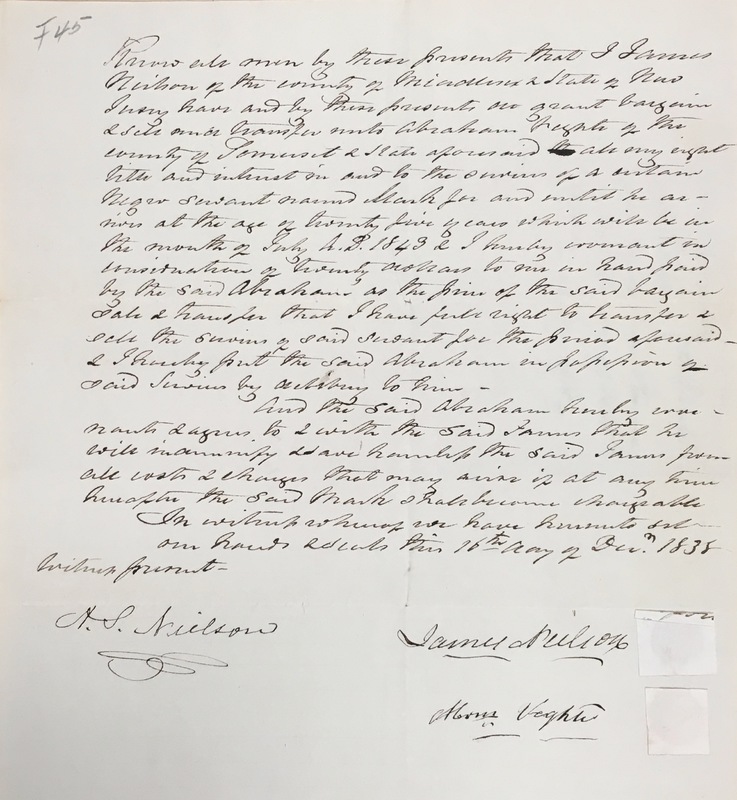 F45
Know all men by these presents that I James
Neilson of the county of Middlesex & State of New
Jersey have and by these presents do grant bargain
& sell and transfer unto Abraham Veghte of the
county of Somerset & State aforesaid all my right
title and interest in and to the services of a certain
Negro servant named Mark for and until he ar-
rives at the age of twenty five years which will be in
the month of July A.D. 1843 & I hereby covenant in
consideration of twenty dollars to me in hand paid
by the said Abraham as the price of the said bargain
sale & transfer that I have full right to transfer &
sell the services of said servant for the period aforesaid-
& I hereby put the said Abraham in possession of
said services by delivery to him -
And the said Abraham hereby cove-
nants & agrees to & with the said James that he
will indemnify & save harmless the said James from
all costs & charges that may arise if at any time
hereafter the said Mark shall become chargeable
In witness whereof we have hereunto set
our hands & seals this 16th day of Decr. 1838
Witness present-
A. S. Neilson
James Neilson
Abrm Veghte